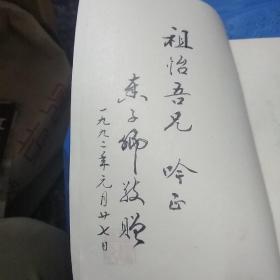 祖怡吾兄 吟正
袁子卿敬赠
一九九二年元月廿七日